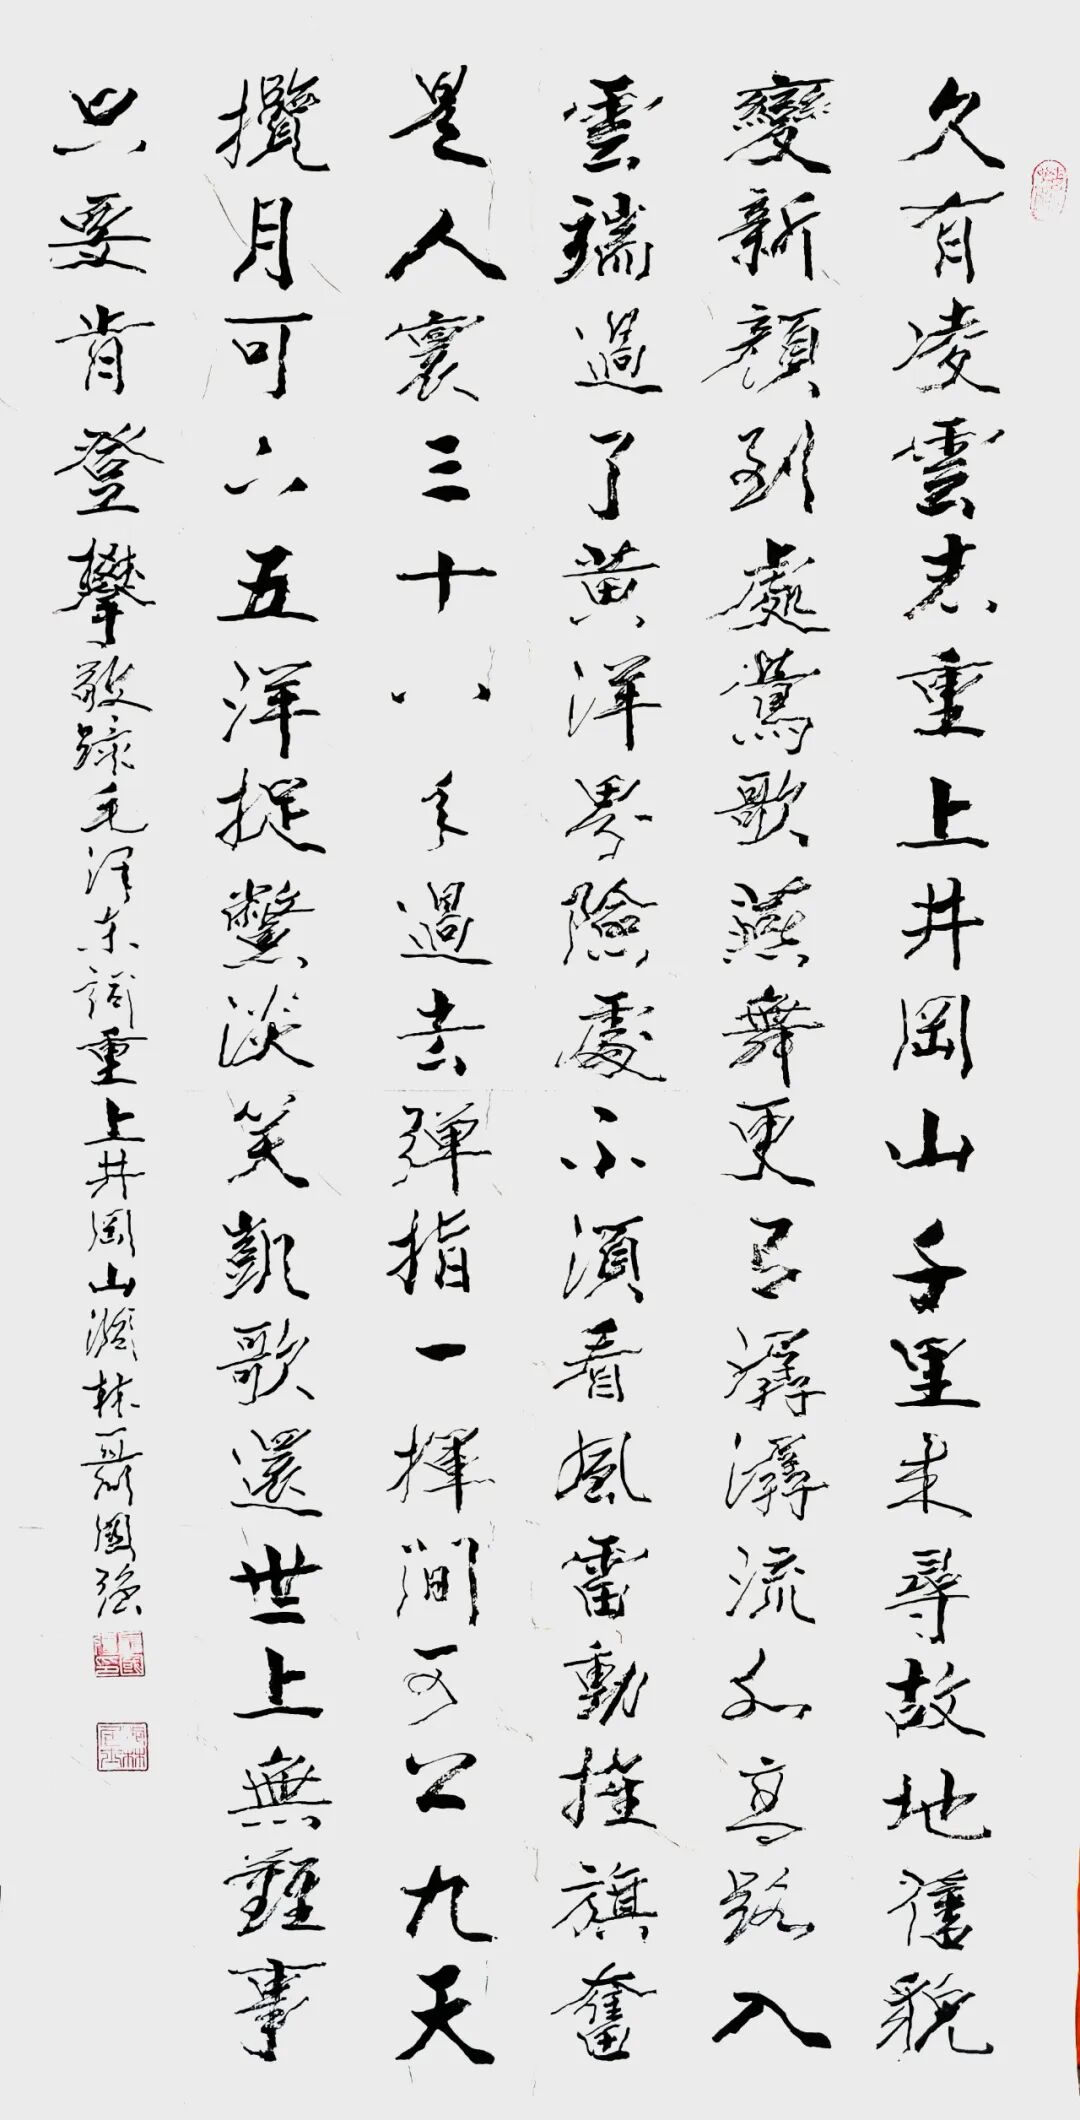 久有凌雲志重上井岡山千里来尋故地舊貌
變新顏到處鶯歌燕舞更有潺潺流水高路入
雲端過了黃洋界險處不須看風雷動旌旗奮
是人寰三十八年過去彈指一揮間可上九天
攬月可下五洋捉鱉談笑凱歌還世上無難事
只要肯登攀敬錄毛澤東詞重上井岡山林聶國強